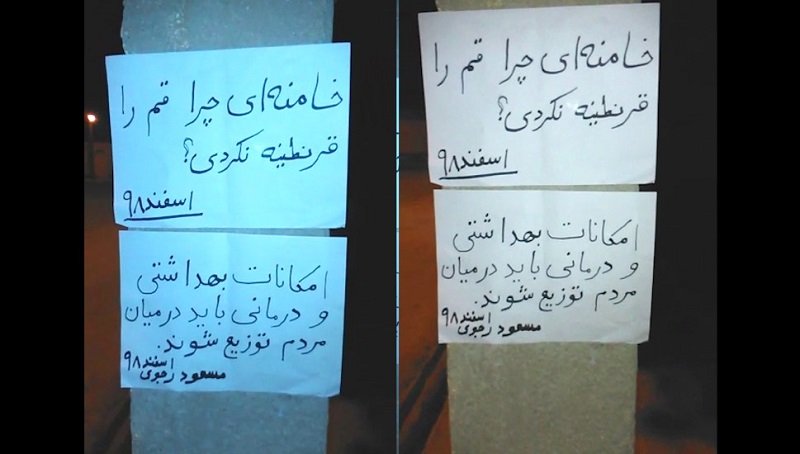 خامنه‌ای چرا قم را
قرنطینه نکردی؟
اسفند ۹۸
امکانات بهداشتی
و درمانی باید درمیان
مردم توزیع شوند.
اسفند ۹۸
مسعود رجوی
خامنه‌ای چرا قم را
قرنطینه نکردی؟
اسفند ۹۸
امکانات بهداشتی
و درمانی باید درمیان
مردم توزیع شوند.
اسفند ۹۸
مسعود رجوی